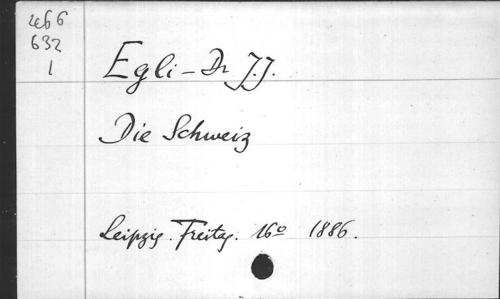 466
632
1
Egli - Dr J.J.
Die Schweiz
Leipzig. Freitag. 16º 1886.